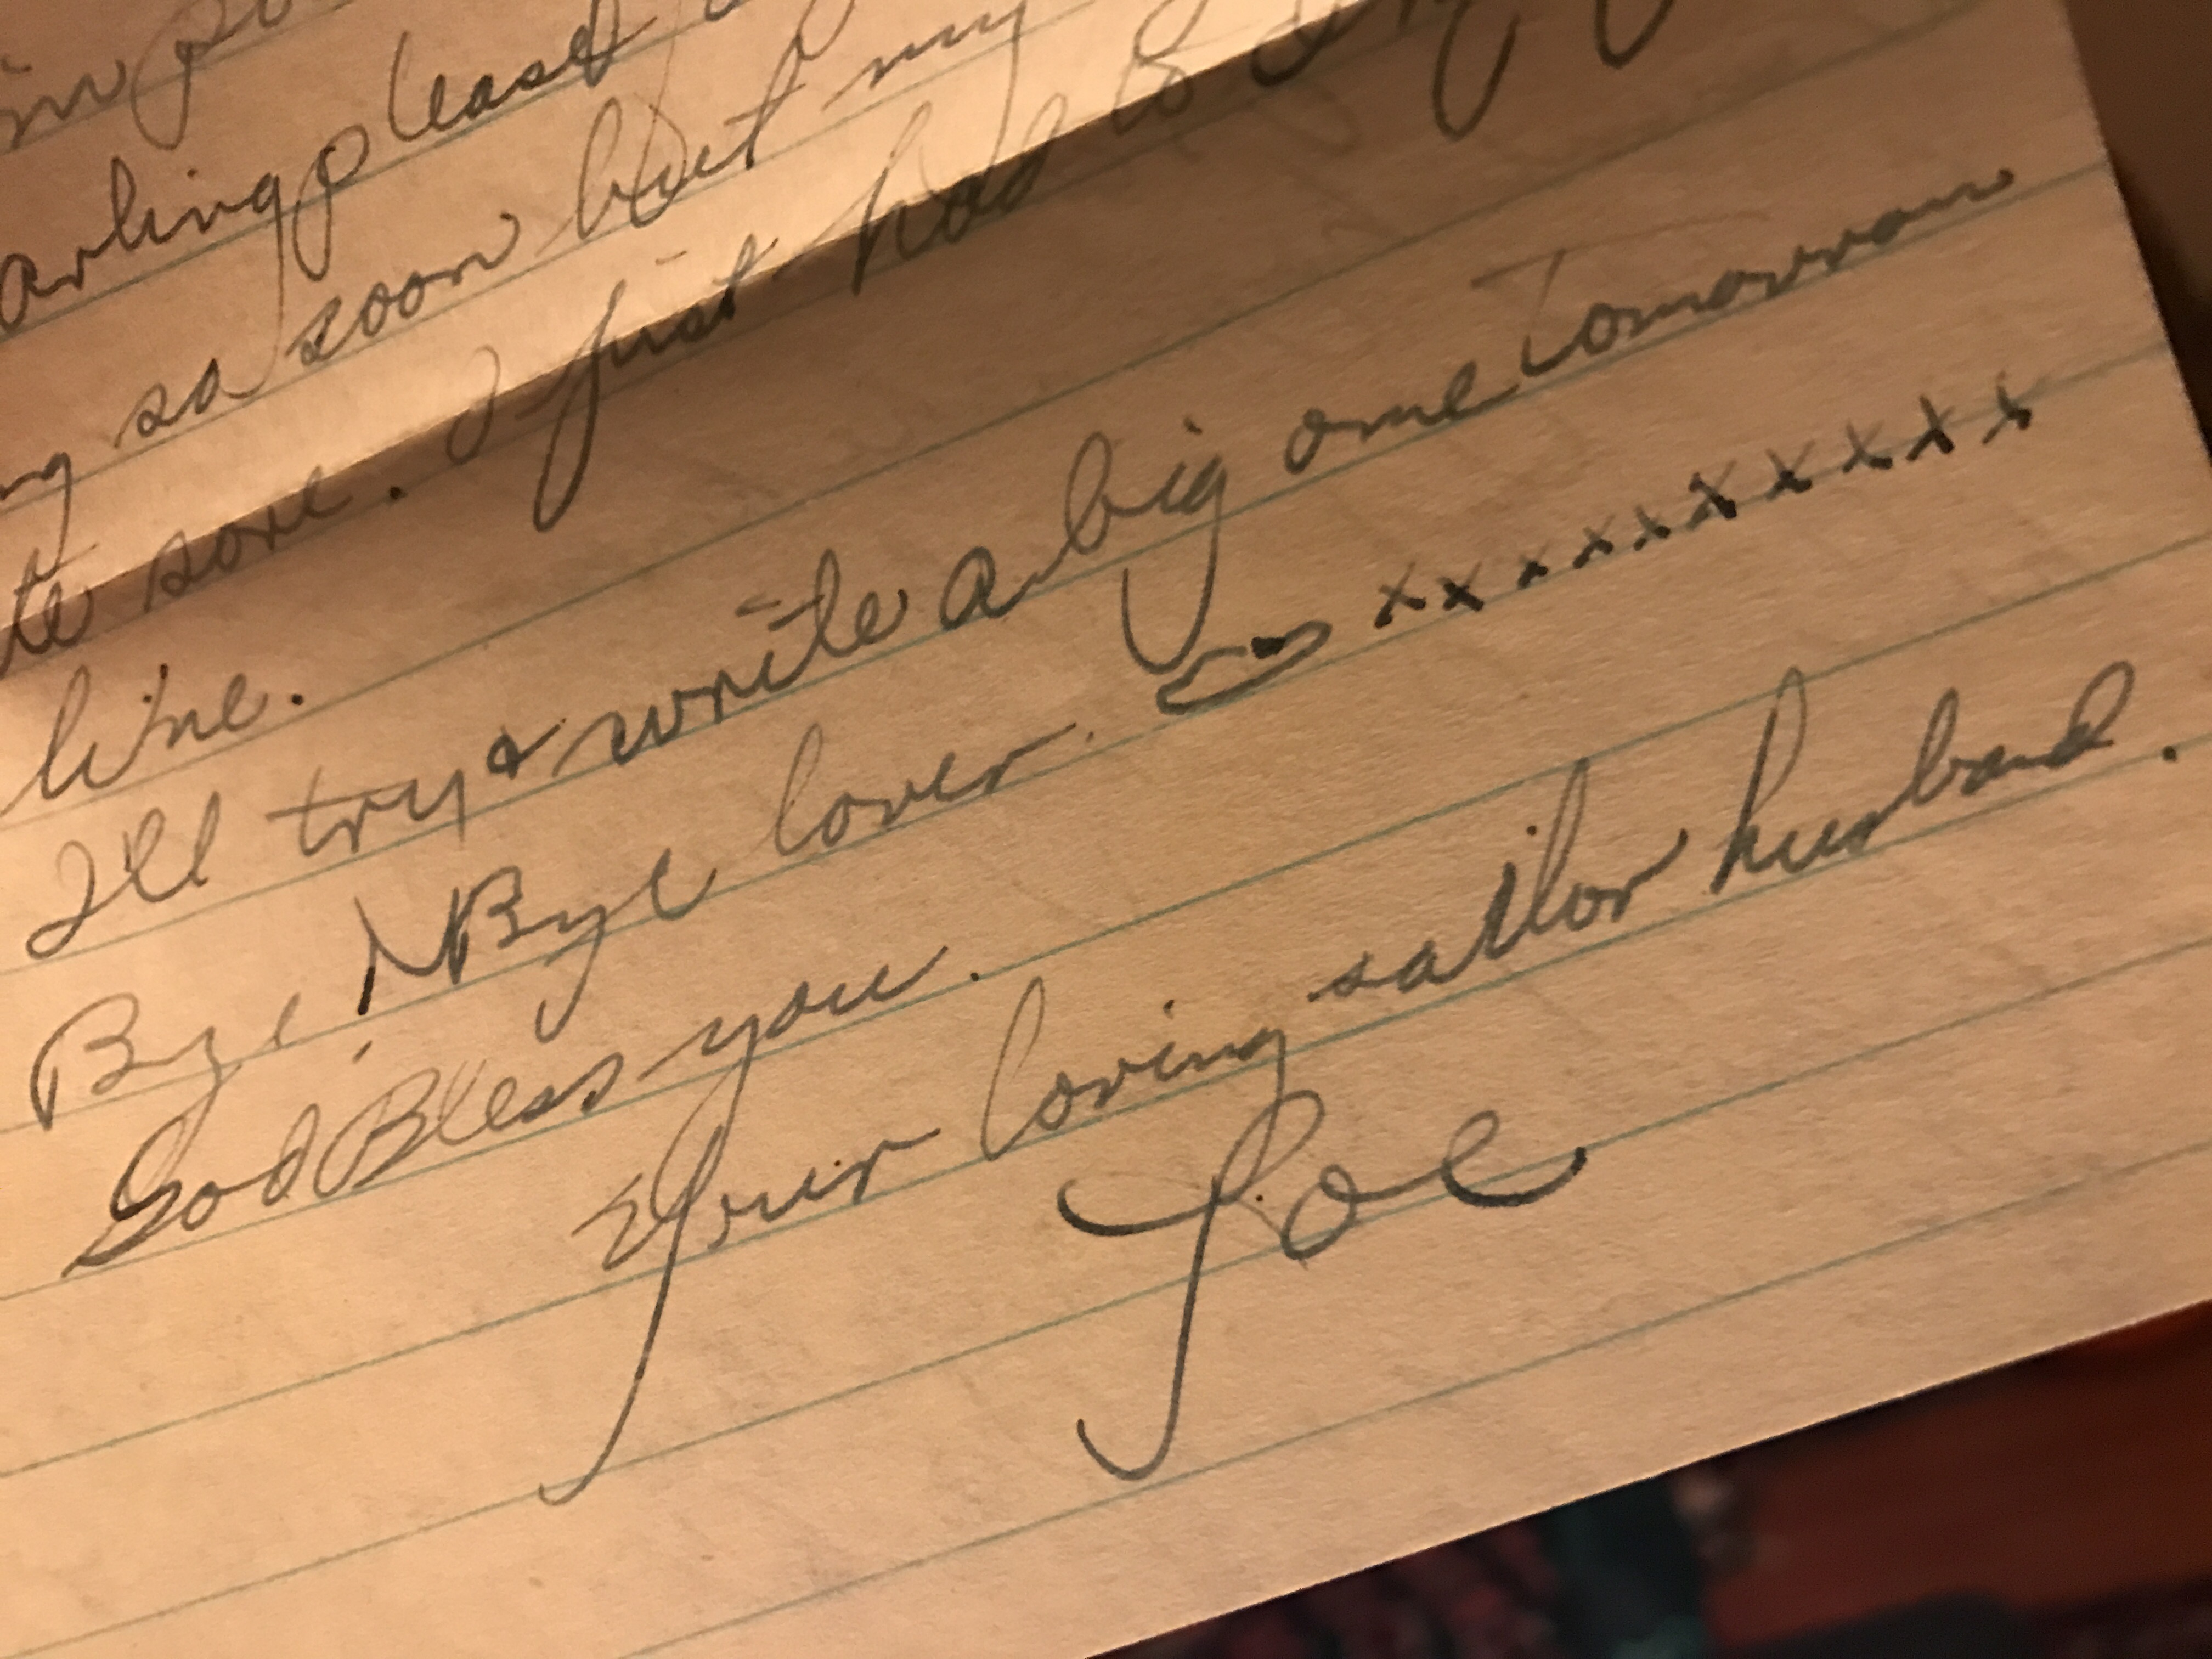 arling please
ng so soon but my
te sore. I just had to
line.
I'll try & write a big one Tomorrow
Bye, Bye lover. xxxxxxxxxx
God Bless you.
Your loving sailor husband.
Joe